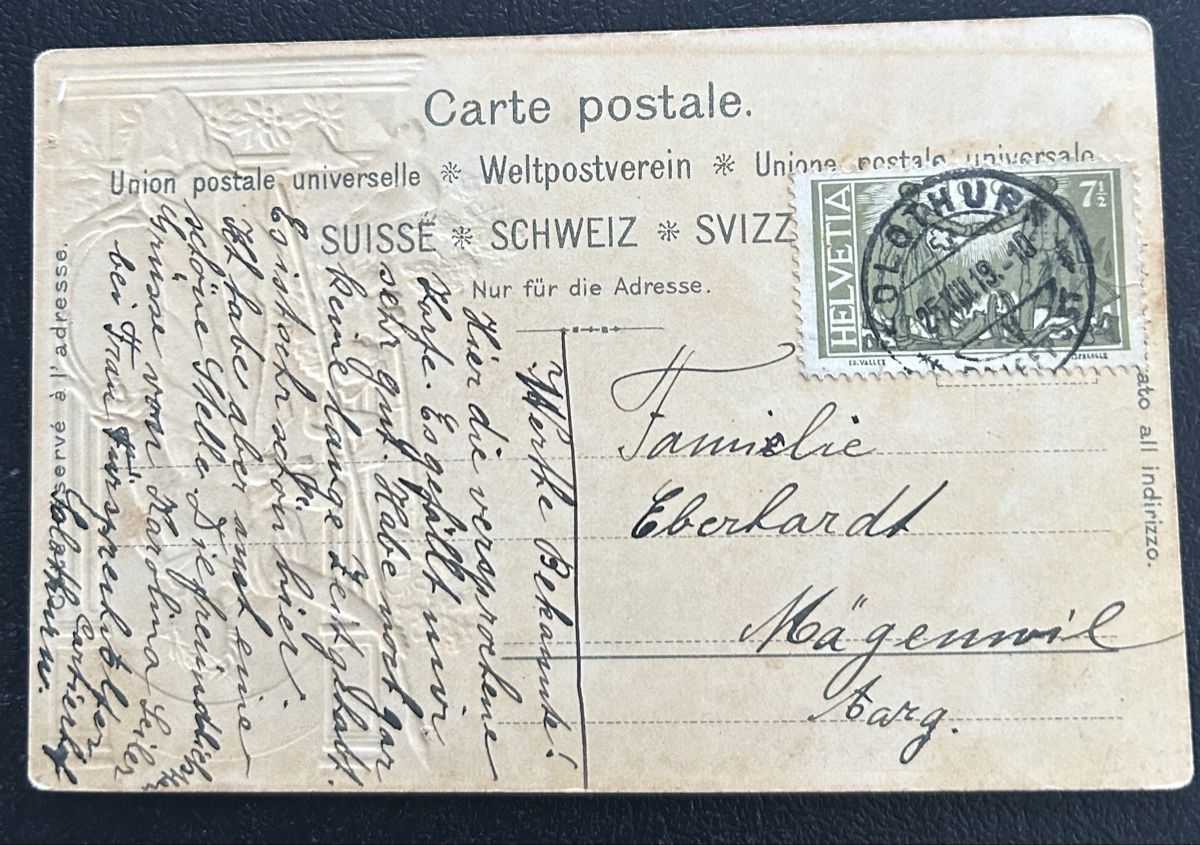 Carte postale.
Union postale universelle ※ Weltpostverein ※ Unione postale universale
SUISSE ※ SCHWEIZ ※ SVIZZ
Nur für die Adresse.
HELVETIA
7½
SOLOTHURN
25.XII.19.-10
ED. VALLET
Côté réservé à l'adresse.
ato all indirizzo.
Familie
Eberhardt
Mägenwil
Aarg.
Werthe Bekannte!
Hier die versprochene
Karte. Es gefällt mir
sehr gut. Habe noch gar
keine lange Zeit gehabt.
Es ist sehr schön hier.
Ich habe aber auch eine
schöne Stelle. Die freundlichsten
Grüsse von Karolina Seiler
bei Frau
Solothurn.